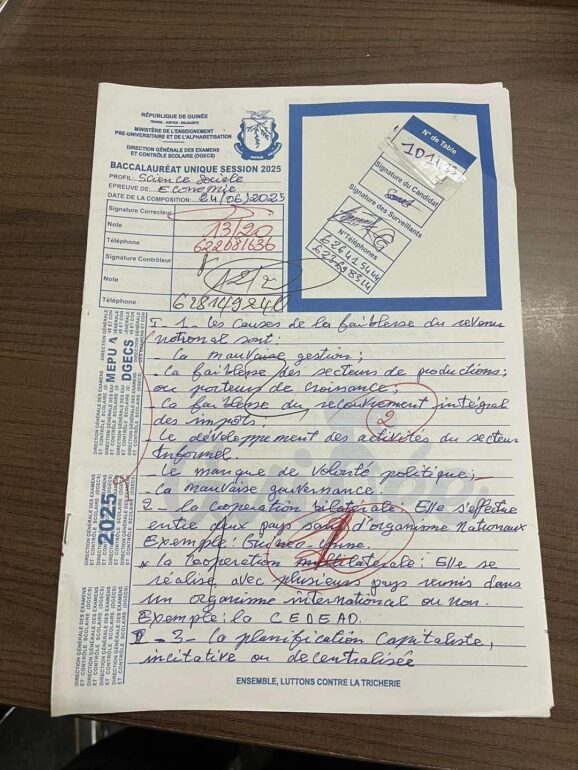 RÉPUBLIQUE DE GUINÉE
TRAVAIL - JUSTICE - SOLIDARITÉ
MINISTÈRE DE L'ENSEIGNEMENT
PRÉ-UNIVERSITAIRE ET DE L'ALPHABETISATION
DIRECTION GÉNÉRALE DES EXAMENS
ET CONTRÔLE SCOLAIRE (DGECS)
BACCALAURÉAT UNIQUE SESSION 2025
PROFIL Science Sociale
EPREUVE DE Economie
DATE DE LA COMPOSITION: 24/06/2025
Signature Correcteur
Note 13/20
Téléphone 622681636
Signature Contrôleur
Note
Téléphone
N° de Table
Signature du Candidat
Signature des Surveillants
N°Téléphones
I - 1 - Les causes de la faiblesse du revenu
national sont :
- La mauvaise gestion ;
- La faiblesse des secteurs de productions ;
ou porteurs de croissance ;
- La faiblesse du recouvrement intégral
des impôts.
- Le développement des activités du secteur
Informel.
- Le manque de volonté politique ;
- La mauvaise gouvernance.
2
2 - La coopération bilatérale : Elle s'effectue
entre deux pays sans d'organisme Nationaux
Exemple : Guinée - Chine.
* La Coopération multilatérale : Elle se
réalise avec plusieurs pays reunis dans
un organisme international ou non.
Exemple : la CEDEAO.
II - 3 - La planification Capitaliste,
incitative ou decentralisée
MEPU A
DGECS
2025
DIRECTION GÉNÉRALE DES EXAMENS
ET CONTRÔLE SCOLAIRE (DGECS)
ENSEMBLE, LUTTONS CONTRE LA TRICHERIE